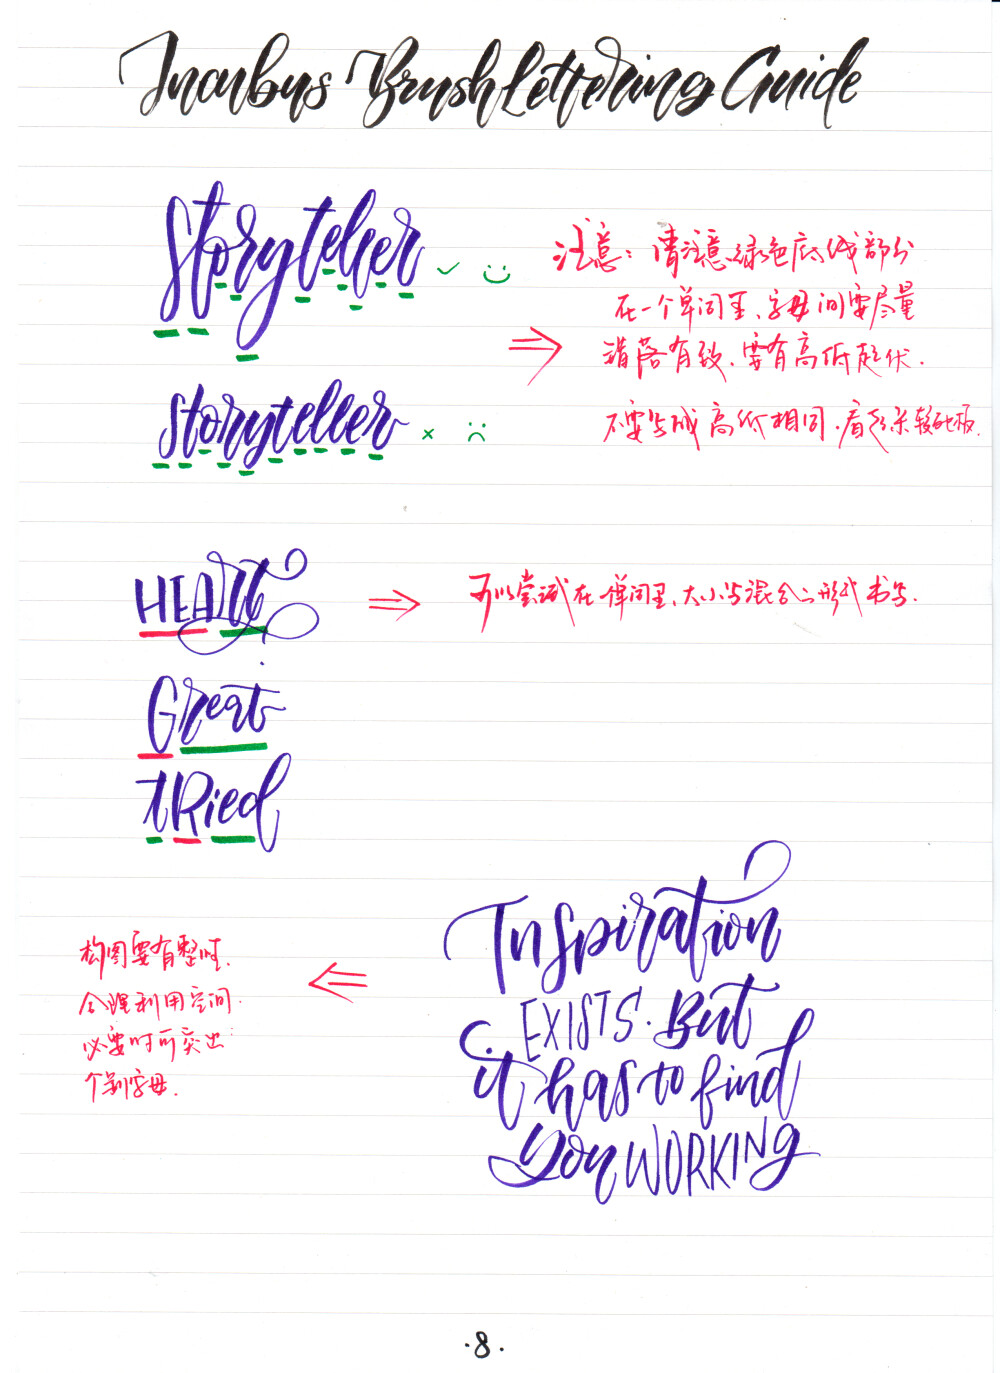 Incubus Brush Lettering Guide
Storyteller ✓
注意：请注意绿色底线部分
在一个单词里、字母间要尽量
错落有致、要有高低起伏.
Storyteller ×
不要写成高低相同.看起来较死板.
HEArt
可以尝试在一单词里、大小写混合的形式书写.
Great
tRied
Inspiration
EXISTS. But
it has to find
you WORKING
构图要有整性、
合理利用空间.
必要时可突出
个别字母.
·8·